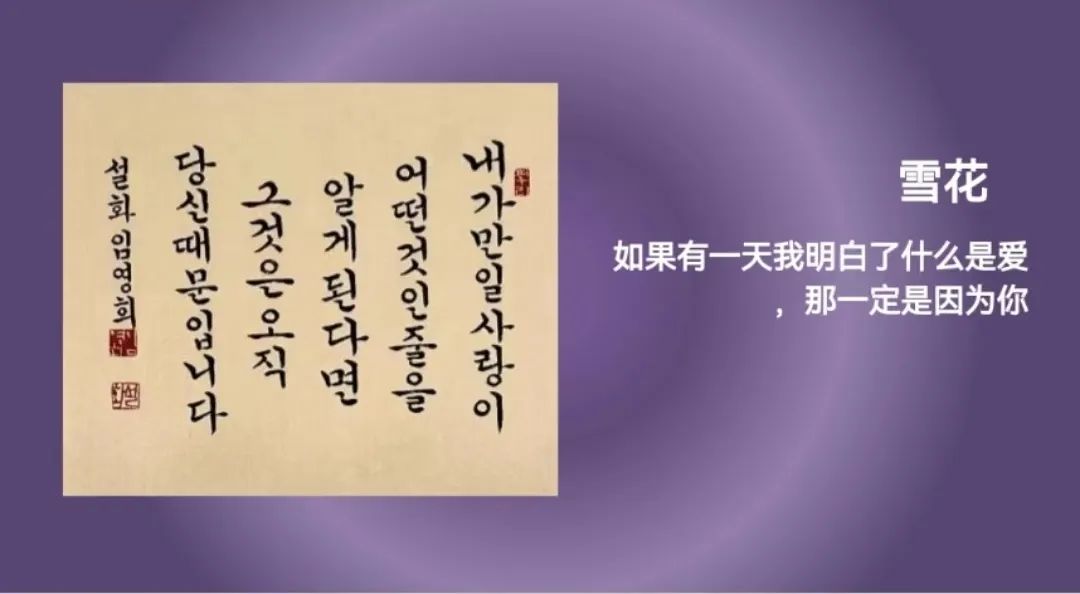 내가만일사랑이
어떤것인줄을
알게된다면
그것은오직
당신때문입니다
설화임영희
雪花
如果有一天我明白了什么是爱
，那一定是因为你